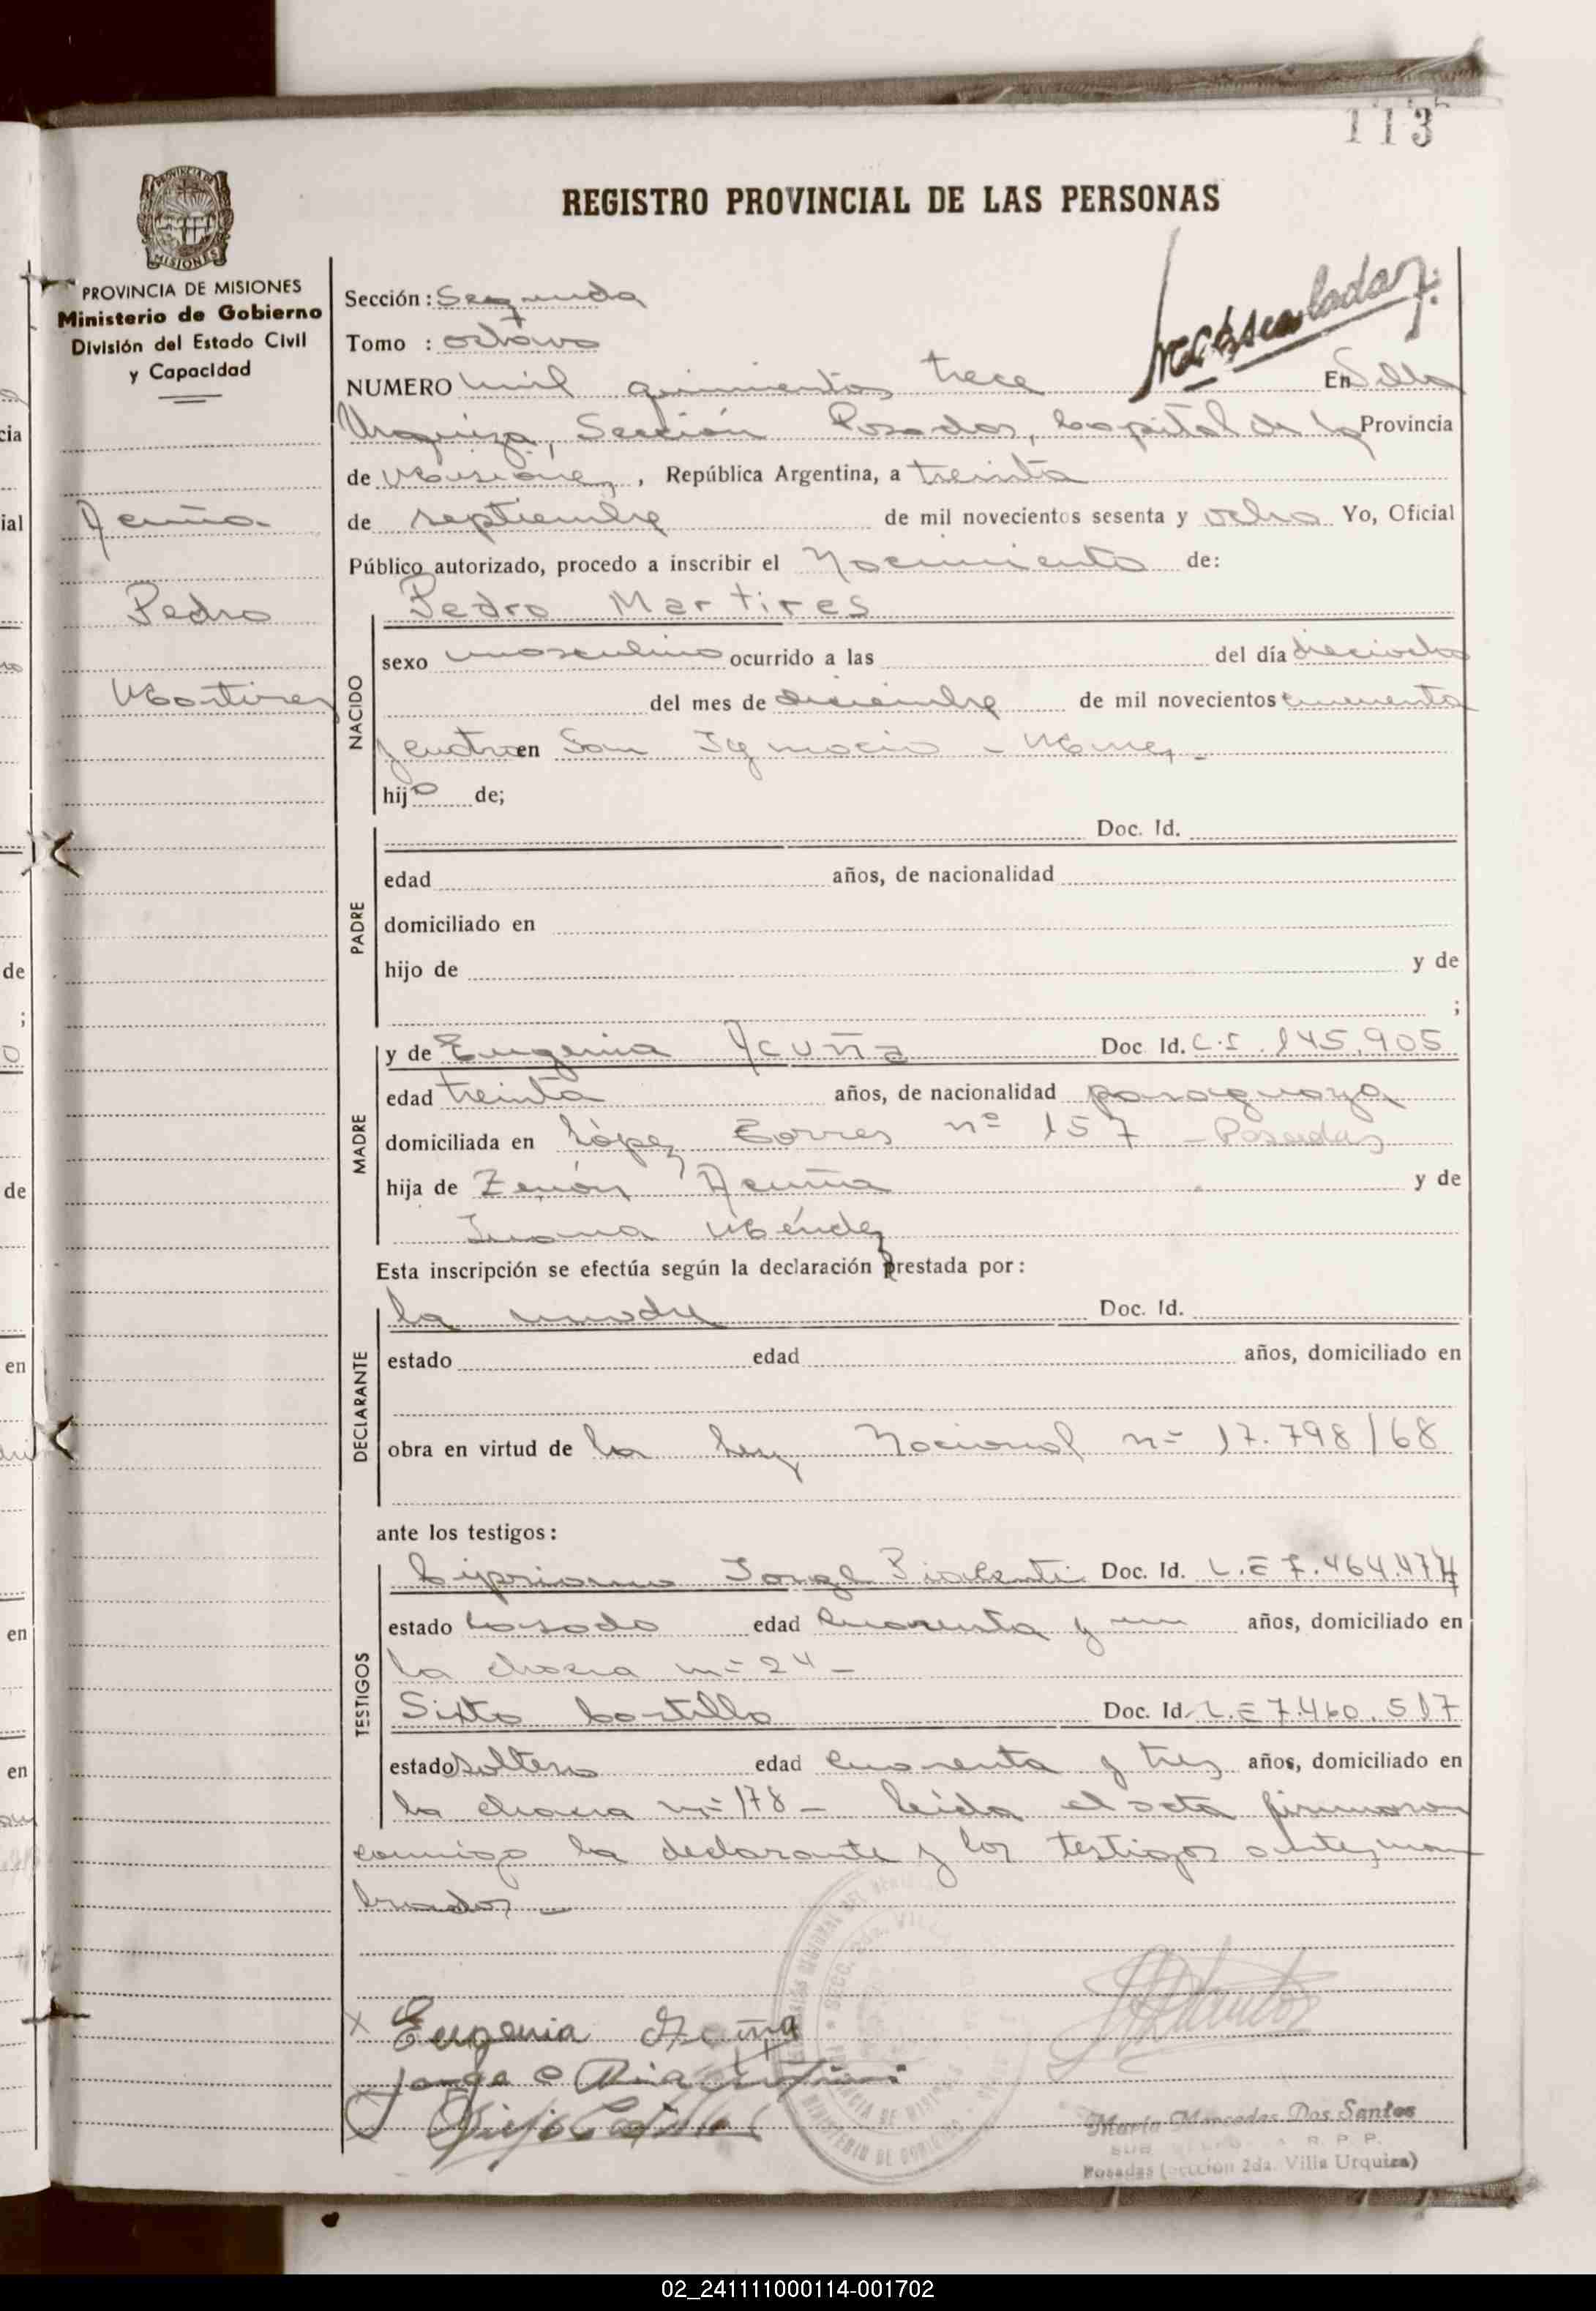 113
REGISTRO PROVINCIAL DE LAS PERSONAS
PROVINCIA DE MISIONES
Ministerio de Gobierno
División del Estado Civil
y Capacidad
Acuña
Pedro
Martires
Sección: Segunda
Tomo : octavo
NUMERO mil quinientos trece En Villa
Urquiza, Sección Posadas, Capital de la Provincia
de Misiones, República Argentina, a treinta
de septiembre de mil novecientos sesenta y ocho Yo, Oficial
Público autorizado, procedo a inscribir el Nacimiento de:
NACIDO
Pedro Martires
sexo masculino ocurrido a las del día dieciocho
del mes de diciembre de mil novecientos cincuenta
y cuatro en San Ignacio - Mnes -
hijo de;
PADRE
Doc. Id.
edad años, de nacionalidad
domiciliado en
hijo de y de
;
MADRE
y de Eugenia Acuña Doc. Id. C.I. 145.905
edad treinta años, de nacionalidad paraguaya
domiciliada en López Torres nº 157 - Posadas
hija de Zenón Acuña y de
Juana Méndez
Esta inscripción se efectúa según la declaración prestada por:
DECLARANTE
la madre Doc. Id.
estado edad años, domiciliado en
obra en virtud de la ley Nacional nº 17.798/68
ante los testigos:
TESTIGOS
Cipriano Jorge Doc. Id. L.E 7.464.474
estado casado edad cuarenta y un años, domiciliado en
la chacra nº 24 -
Sixto Castillo Doc. Id. L.E 7.460.517
estado soltero edad cuarenta y tres años, domiciliado en
la chacra nº 178 - leída el acta firmaron
conmigo la declarante y los testigos antes nom
brados -
x Eugenia Acuña
Jorge C
María Mercedes Dos Santos
R. P. P.
Posadas (Sección 2da. Villa Urquiza)
02_241111000114-001702